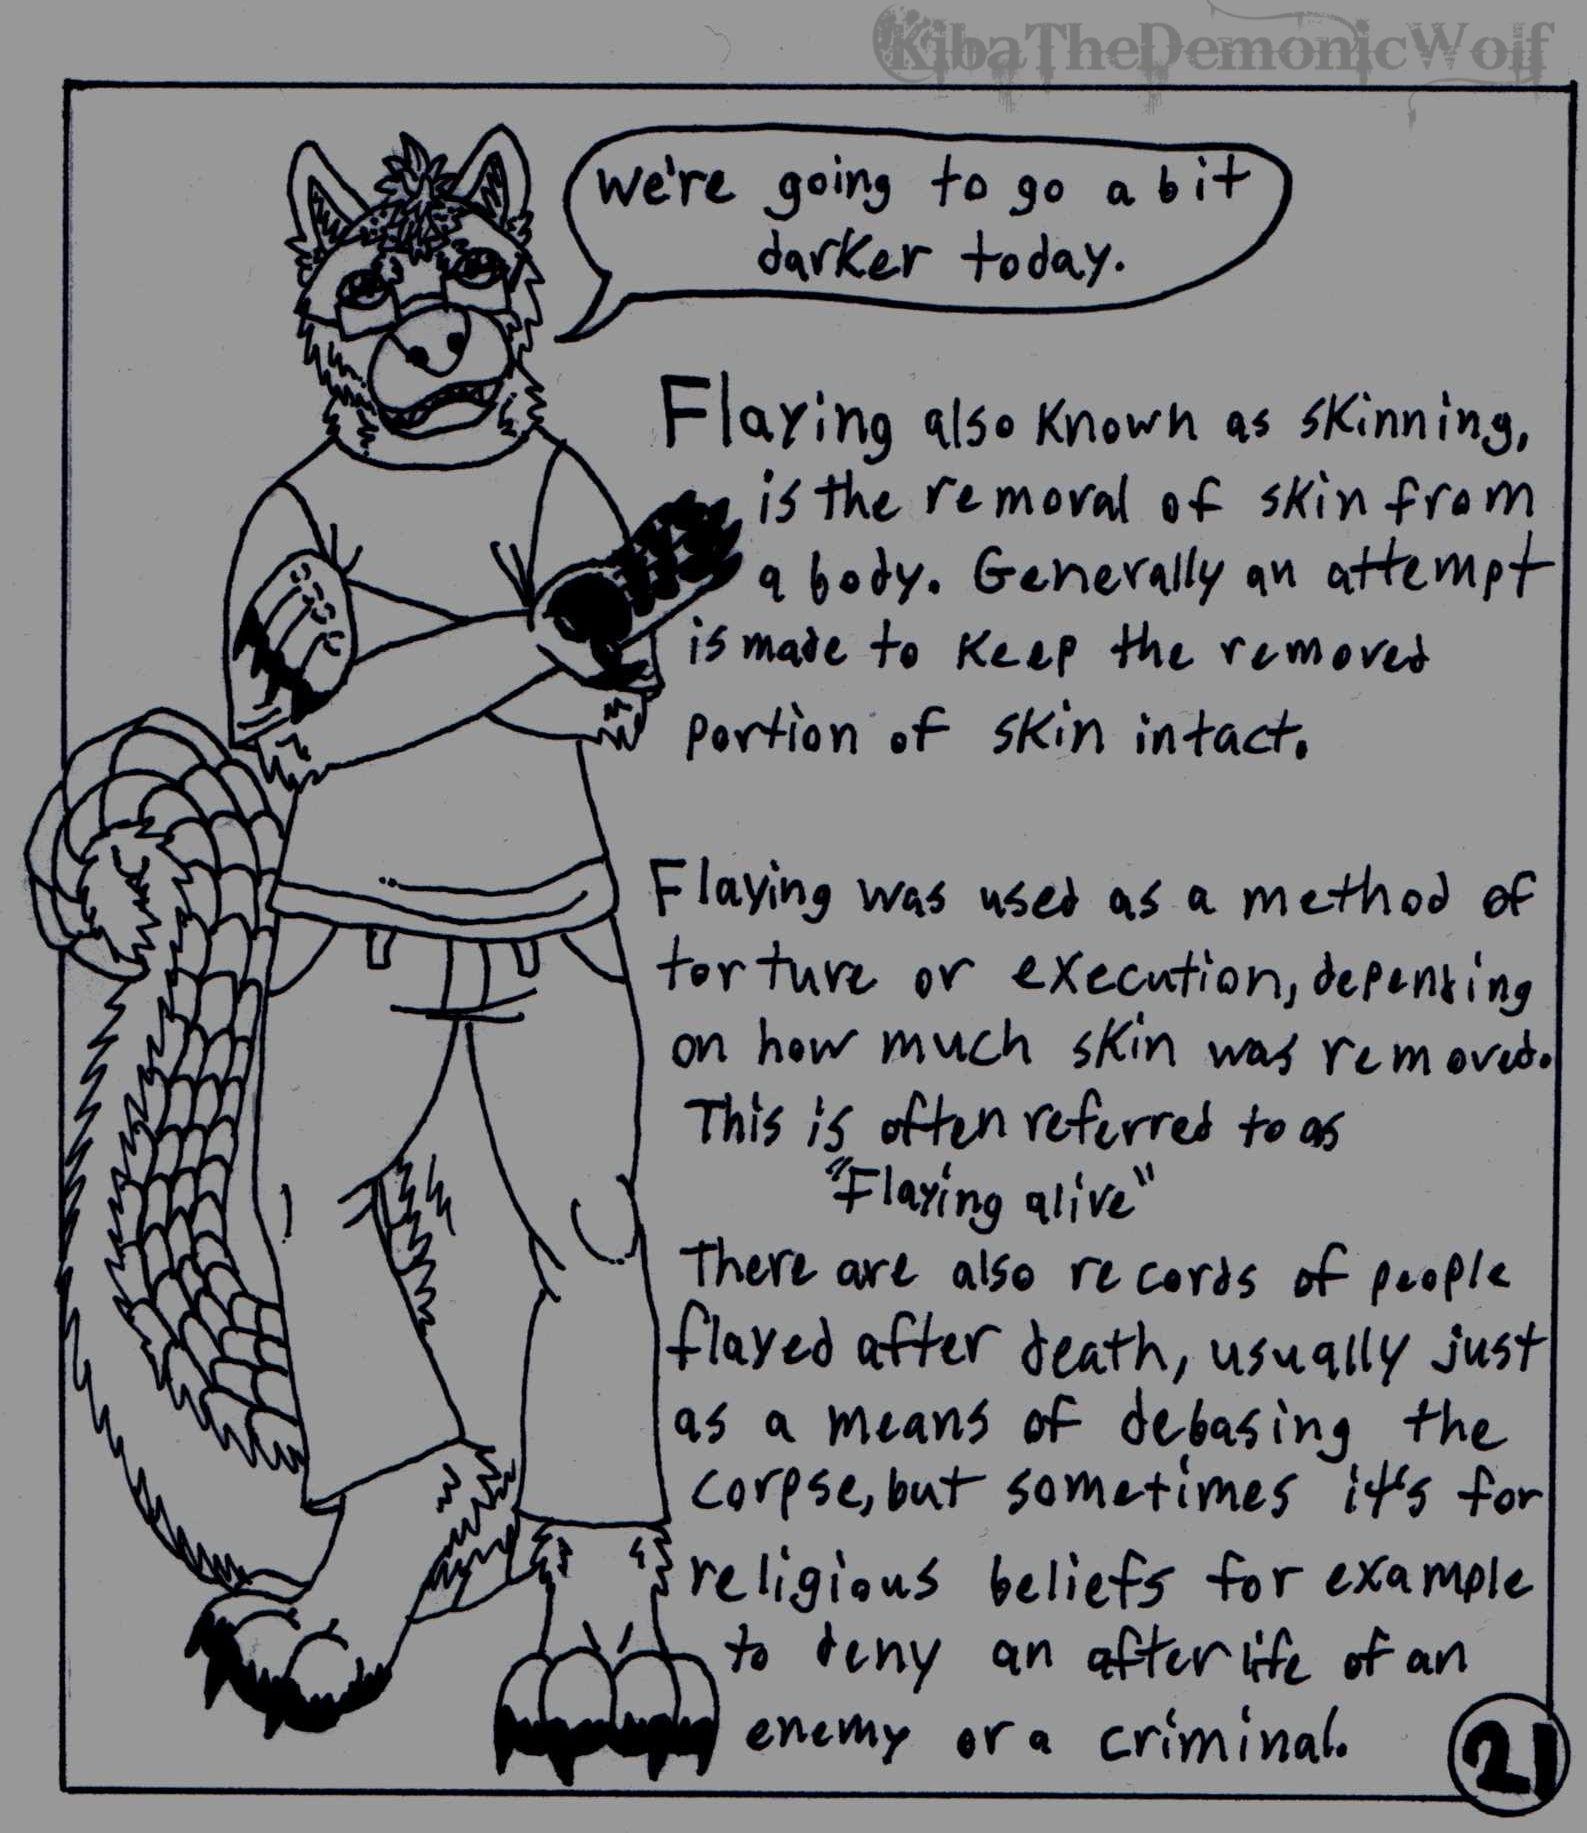 KibaTheDemonicWolf
We're going to go a bit
darker today.
Flaying also known as skinning,
is the removal of skin from
a body. Generally an attempt
is made to keep the removed
portion of skin intact.
Flaying was used as a method of
torture or execution, depending
on how much skin was removed.
This is often referred to as
"Flaying alive"
There are also records of people
flayed after death, usually just
as a means of debasing the
corpse, but sometimes it's for
religious beliefs for example
to deny an afterlife of an
enemy or a criminal.
21